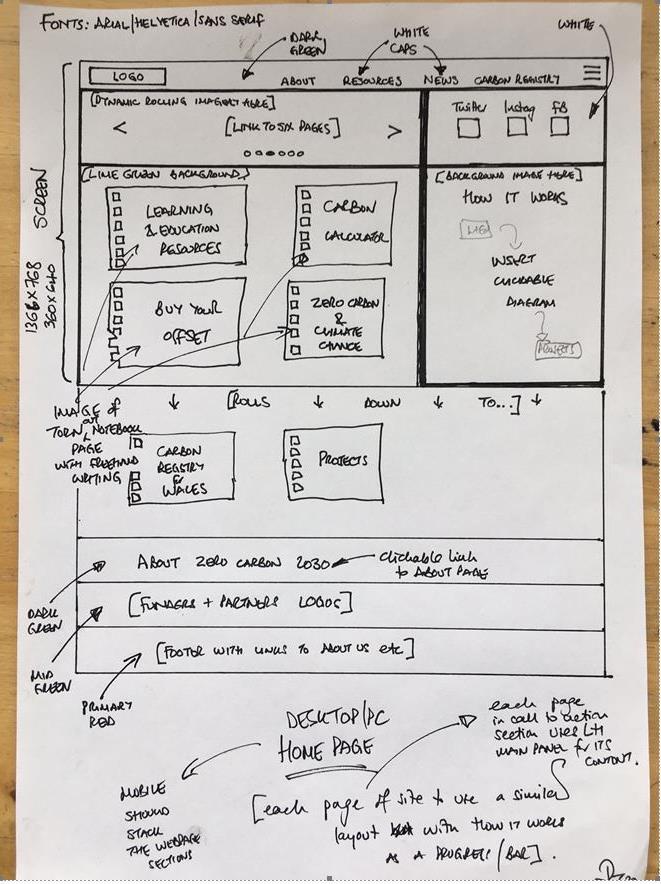 FONTS: ARIAL/HELVETICA/SANS SERIF
DARK GREEN
WHITE CAPS
WHITE
LOGO
ABOUT RESOURCES NEWS CARBON REGISTRY
[DYNAMIC ROLLING IMAGERY HERE]
< [LINK TO SIX PAGES] >
Twitter Instag FB
[LIME GREEN BACKGROUND]
[BACKGROUND IMAGE HERE]
HOW IT WORKS
LEARNING
& EDUCATION
RESOURCES
CARBON
CALCULATOR
INSERT
CLICKABLE
DIAGRAM
PROJECTS
BUY YOUR
OFFSET
ZERO CARBON
&
CLIMATE
CHANGE
SCREEN
1366 x 768
360 x 640
[ROLLS DOWN TO...]
IMAGE OF
TORN OUT NOTEBOOK
PAGE
WITH FREEHAND
WRITING
CARBON
REGISTRY
for
WALES
PROJECTS
ABOUT ZERO CARBON 2030
clickable link
to ABOUT PAGE
DARK
GREEN
[FUNDERS + PARTNERS LOGOS]
MID
GREEN
[FOOTER WITH LINKS TO ABOUT US etc]
PRIMARY
RED
DESKTOP/PC
HOME PAGE
each page
in call to action
section uses LH
MAIN PANEL for ITS
CONTENT.
MOBILE
SHOULD
STACK
THE WEBPAGE
SECTIONS
[each page of site to use a similar
layout with HOW IT WORKS
AS A PROGRESS/BAR].